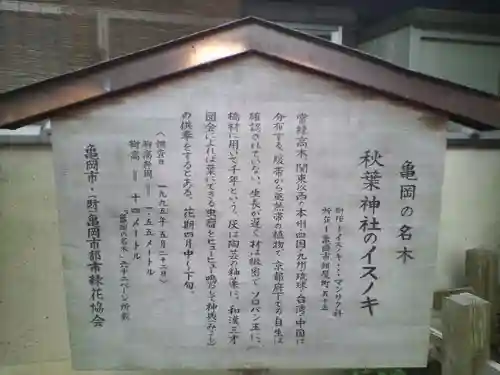 亀岡の名木
秋葉神社のイスノキ
樹種－イスノキ・・・マンサク科
所在－亀岡市紺屋町五十三
常緑高木、関東以西の本州・四国・九州・琉球・台湾・中国に
分布する。暖帯から亜熱帯の植物で、京都府下での自生は
確認されていない。生長が遅く、材は緻密で、ソロバン玉に、
橋材に用いて千年という。灰は陶芸の釉薬に。和漢三才
図会によれば葉にできる虫瘤をヒョーヒョー鳴らして神祇(みこ)
の供奉をするとある。花期四月中～下旬。
（調査日　一九九五年五月二十二日）
胸高幹周＝一・五五メートル
樹高＝十四メートル
「亀岡の名木」六十二ページ所載
亀岡市・(財)亀岡市都市緑花協会